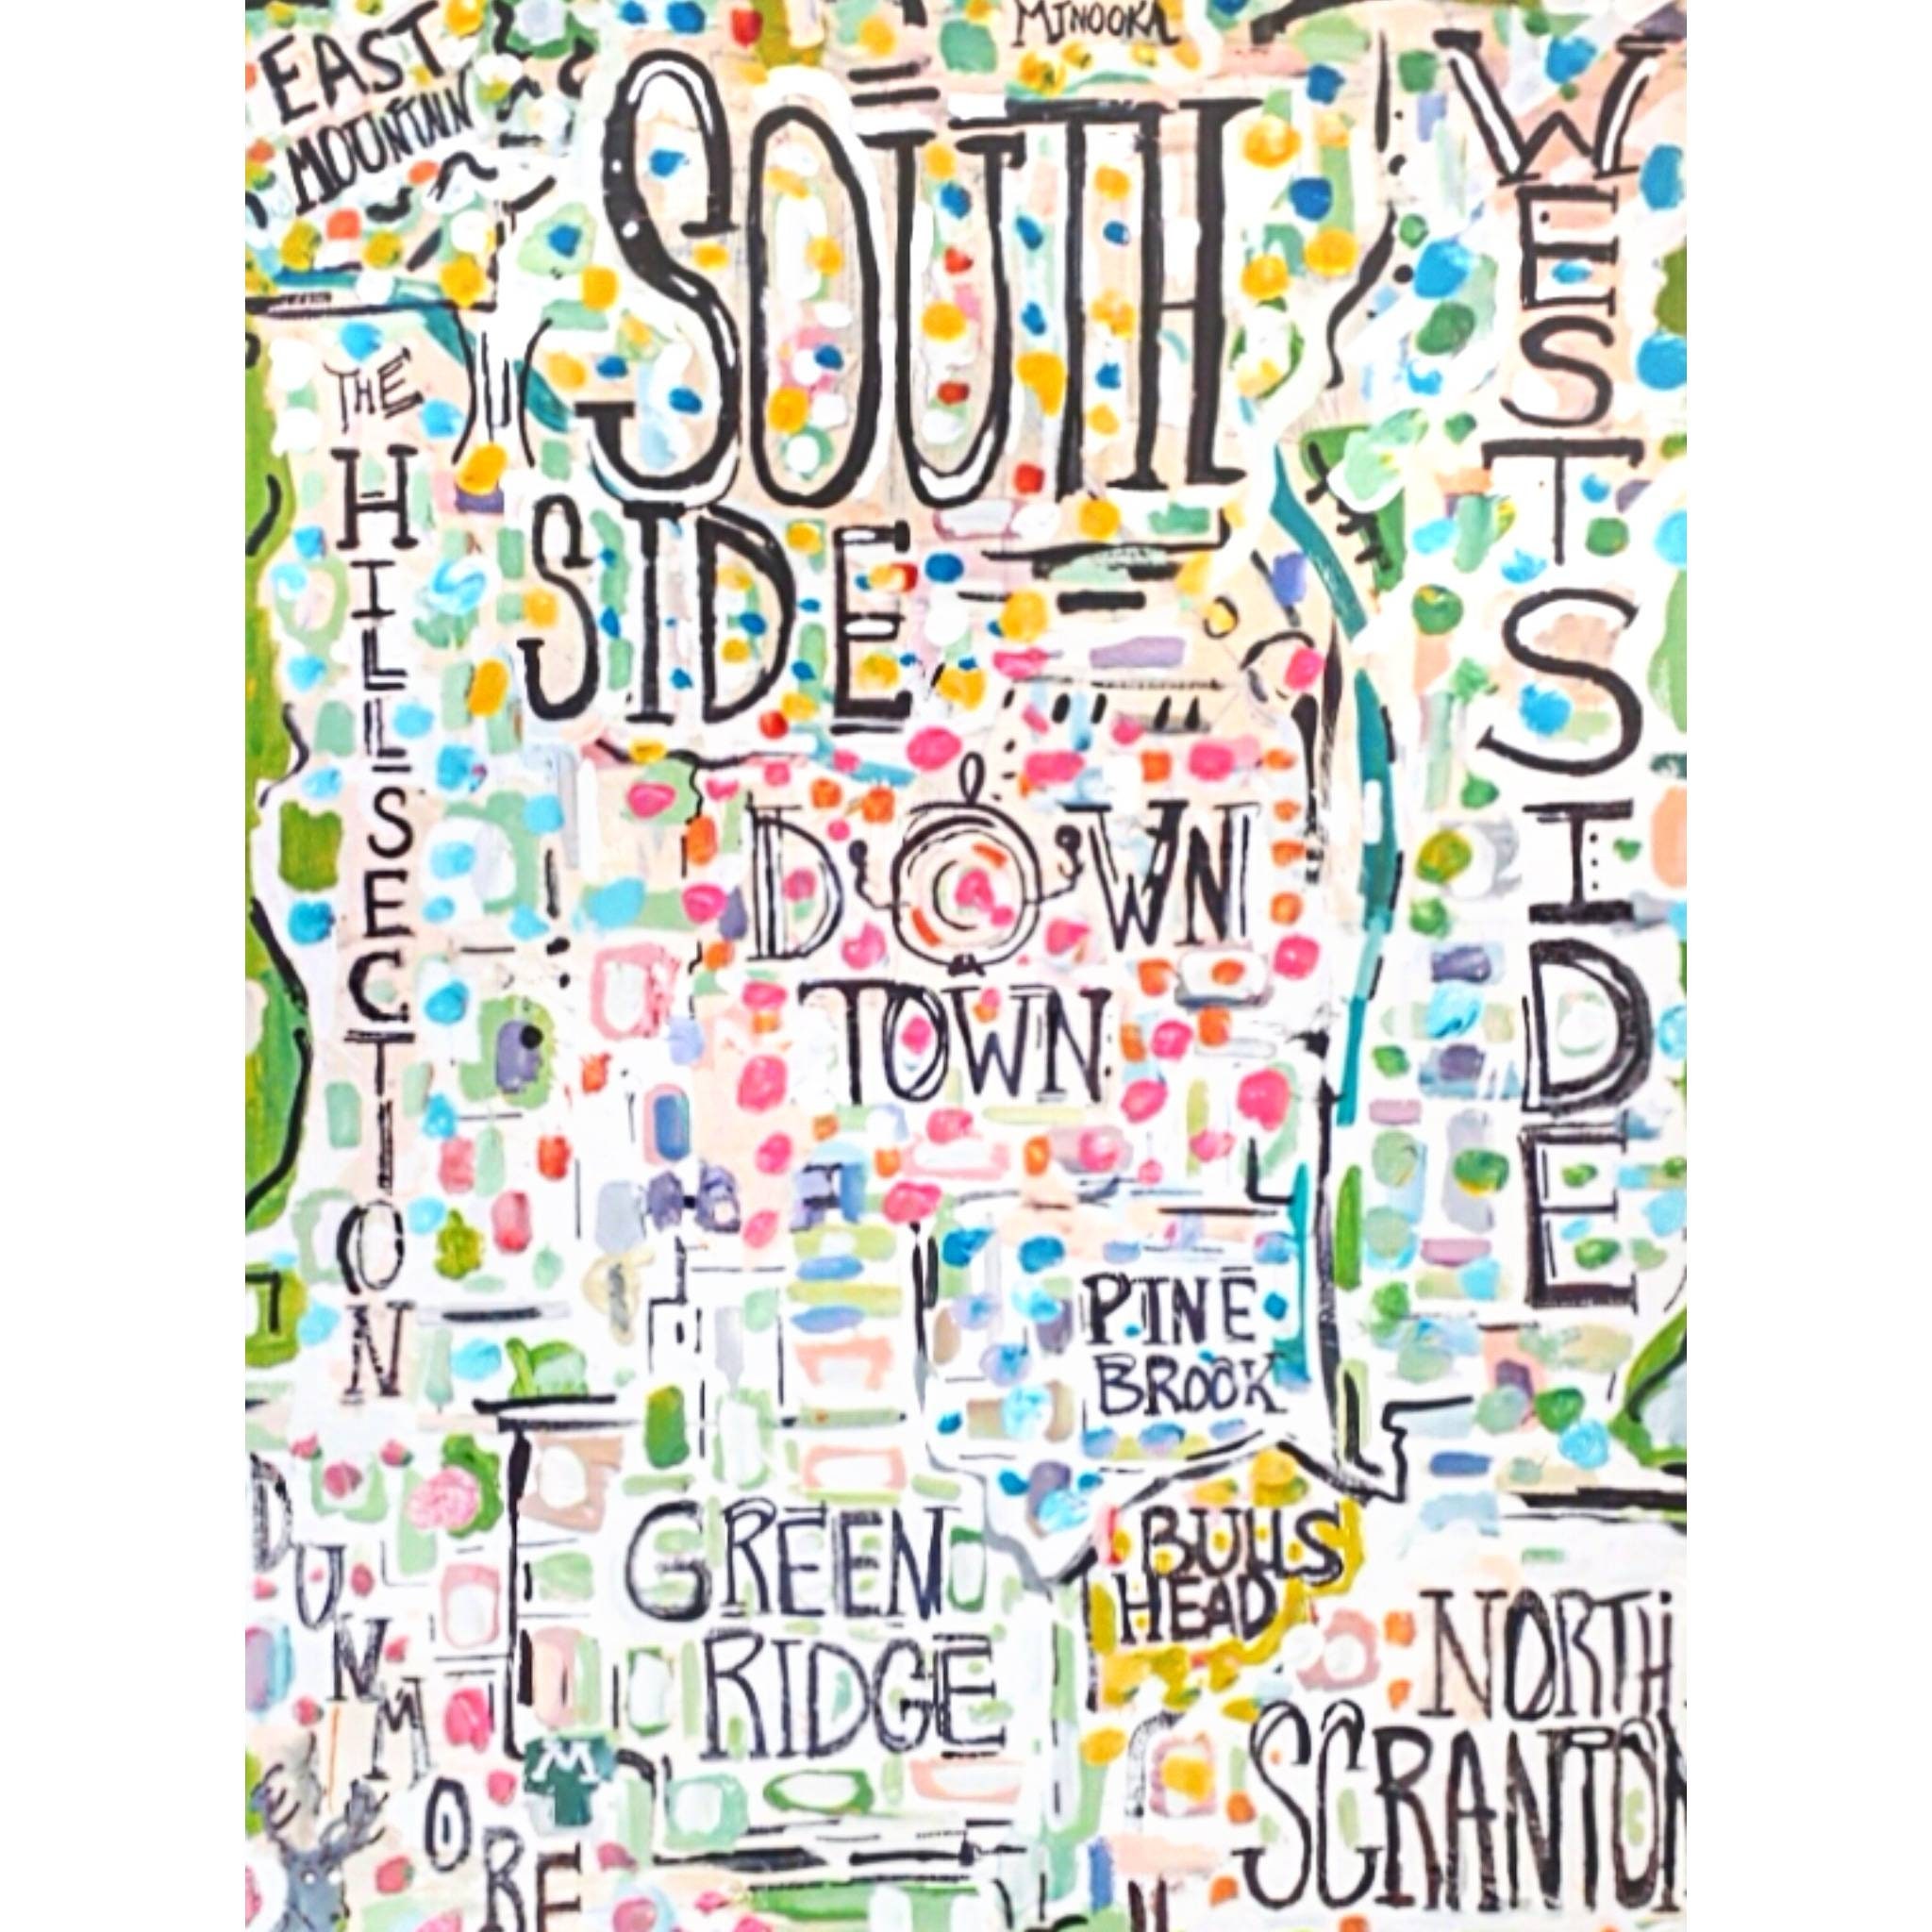 MINOOKA
EAST
MOUNTAIN
SOUTH
SIDE
WEST SIDE
THE
HILL SECTION
DOWN
TOWN
PINE
BROOK
GREEN
RIDGE
BULLS
HEAD
NORTH
SCRANTON
DUNMORE
M